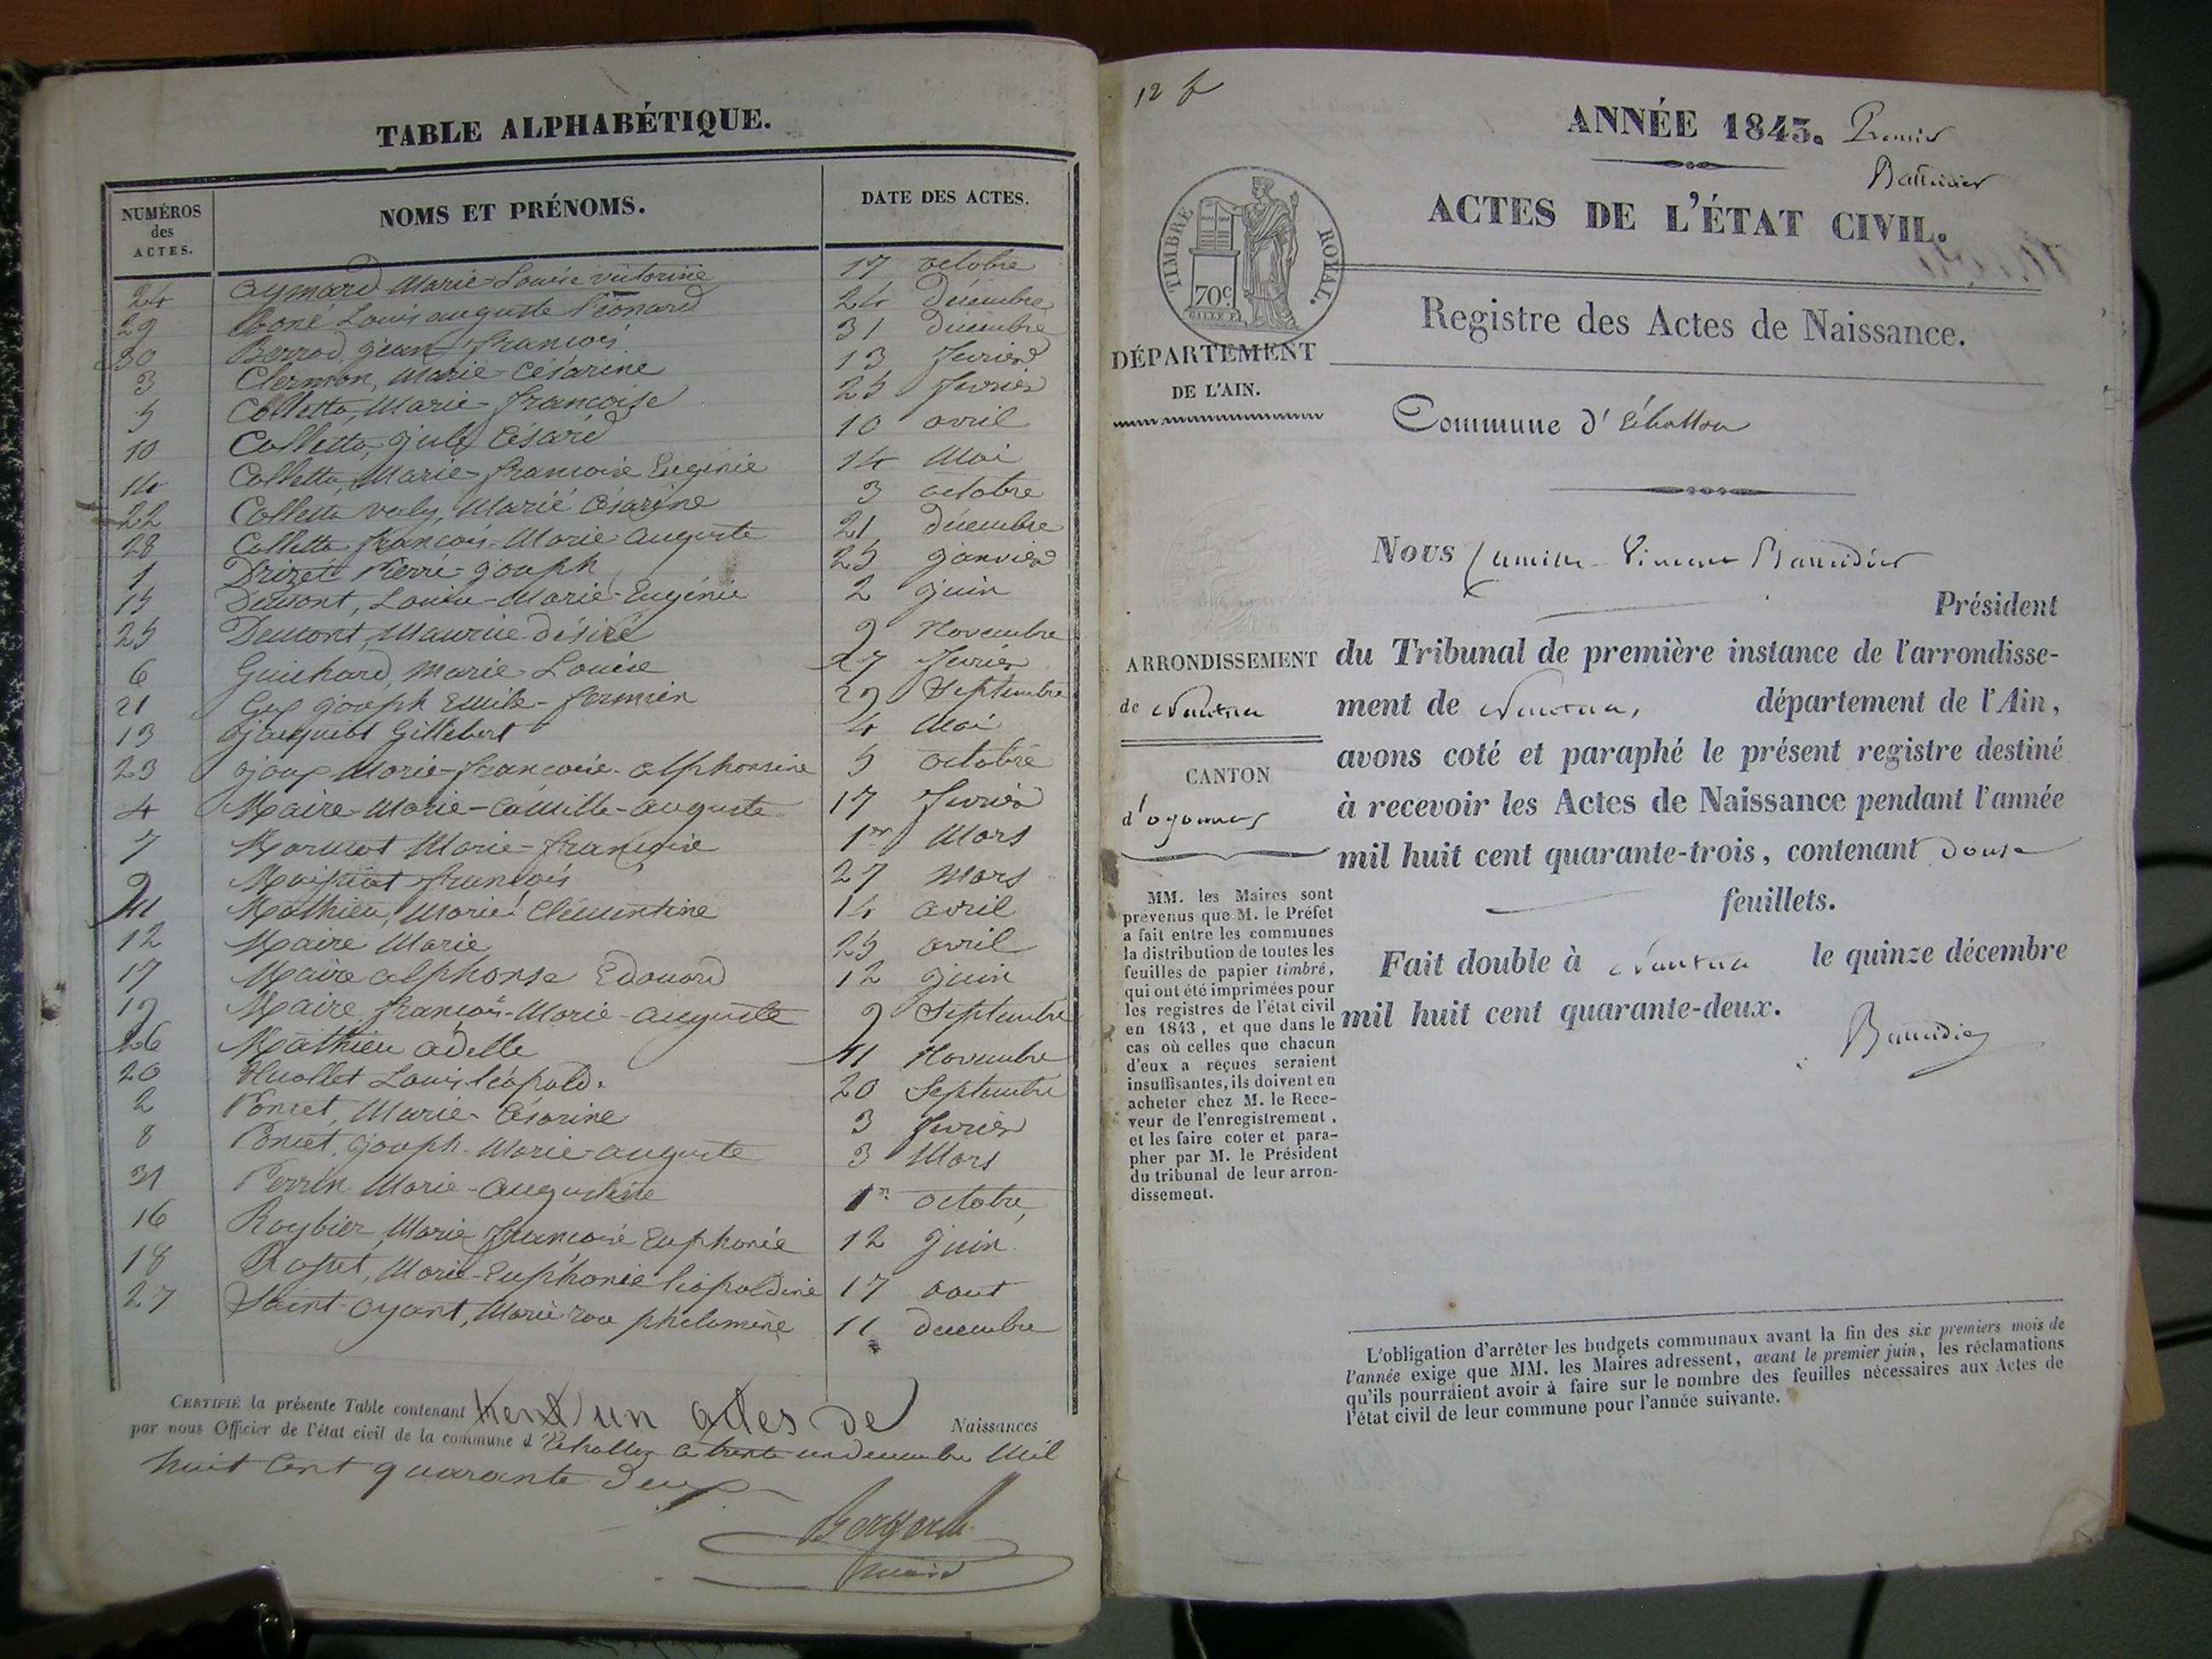 TABLE ALPHABÉTIQUE.
NUMÉROS
des
ACTES.
NOMS ET PRÉNOMS.
DATE DES ACTES.
24 aymard Marie-Louise victorine 17 octobre
29 Louis auguste Léonard 24 Décembre
30 Berrod, jean françois 31 décembre
3 Clermon, Marie-Césarine 13 fevrier
5 Colletta, Marie-françoise 25 fevrier
10 Colletta, jule Césard 10 avril
14 Colletta, Marie-francoise Eugenie 14 Mai
22 Colletta Marie Césarine 3 octobre
28 Colletta françois-Marie auguste 21 décembre
1 Drizet Pierre-joseph 25 janvier
15 Dumont, Louise-Marie-Eugénie 2 juin
25 Dumont, Maurice désiré 9 Novembre
6 Guichard, Marie-Louise 27 fevrier
21 joseph Emile-firmin 29 Septembre
13 jacquiot Gillebert 4 Mai
23 Marie-francoise-alphonsine 5 octobre
4 Maire-Marie-Camille-auguste 17 fevrier
7 Marie-françoise 1er Mars
9 françois 27 Mars
11 Mathieu, Marie Clémentine 14 avril
12 Maire Marie 25 avril
17 Maire alphonse Edouard 12 juin
19 Maire françois-Marie-auguste 9 Septembre
26 Mathieu adelle 11 Novembre
20 Louis léopold. 20 Septembre
2 Poncet, Marie-Césarine 3 fevrier
8 Poncet, joseph-Marie auguste 3 Mars
31 Perrin Marie-augustine 1er octobre
16 Roybier Marie françoise Euphonie 12 Juin
18 Marie-Euphonie léopoldine 17 aout
27 Saint-oyant, Marie rose philomène 11 decembre
CERTIFIÉ la présente Table contenant trente un actes de Naissances
par nous Officier de l'état civil de la commune d'Echallon ce trente un decembre Mil
huit Cent quarante deux
Maire
12 f
ANNÉE 1843. Premier
Baudier
ACTES DE L'ÉTAT CIVIL.
TIMBRE ROYAL.
70c
Registre des Actes de Naissance.
DÉPARTEMENT
DE L'AIN.
Commune d'Echallon
Nous Camille-Vincent
Président
ARRONDISSEMENT
de Nantua
CANTON
d'oyonnax
du Tribunal de première instance de l'arrondisse-
ment de Nantua, département de l'Ain,
avons coté et paraphé le présent registre destiné
à recevoir les Actes de Naissance pendant l'année
mil huit cent quarante-trois, contenant douze
feuillets.
Fait double à Nantua le quinze décembre
mil huit cent quarante-deux.
MM. les Maires sont
prévenus que M. le Préfet
a fait entre les communes
la distribution de toutes les
feuilles de papier timbré,
qui ont été imprimées pour
les registres de l'état civil
en 1843, et que dans le
cas où celles que chacun
d'eux a reçues seraient
insuffisantes, ils doivent en
acheter chez M. le Rece-
veur de l'enregistrement,
et les faire coter et para-
pher par M. le Président
du tribunal de leur arron-
dissement.
L'obligation d'arrêter les budgets communaux avant la fin des six premiers mois de
l'année exige que MM. les Maires adressent, avant le premier juin, les réclamations
qu'ils pourraient avoir à faire sur le nombre des feuilles nécessaires aux Actes de
l'état civil de leur commune pour l'année suivante.